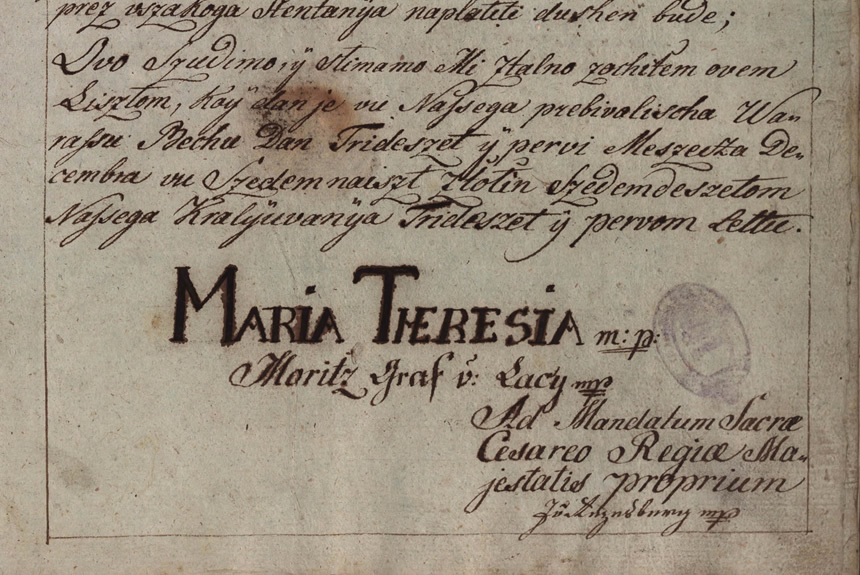 prez vszakoga Stentanÿa naplatiti dusken bude;
Ovo Szudimo, ÿ stimamo Mi Stalno zachitem ovem
Lisztom, koÿ dan je vu Nassega prebivalischa Wa=
rassu Bechu Dan Trideszet ÿ pervi Meszecza De=
cembra vu Szedemnaiszt Ztotin Szedemdeszetom
Nassega Kralÿuvanÿa Trideszet ÿ pervom Lettu.
MARIA THERESIA m: p:
Moritz Graf v: Lacy mp
Ad Mandatum Sacræ
Cesareo Regiæ Ma=
jestatis proprium
mp